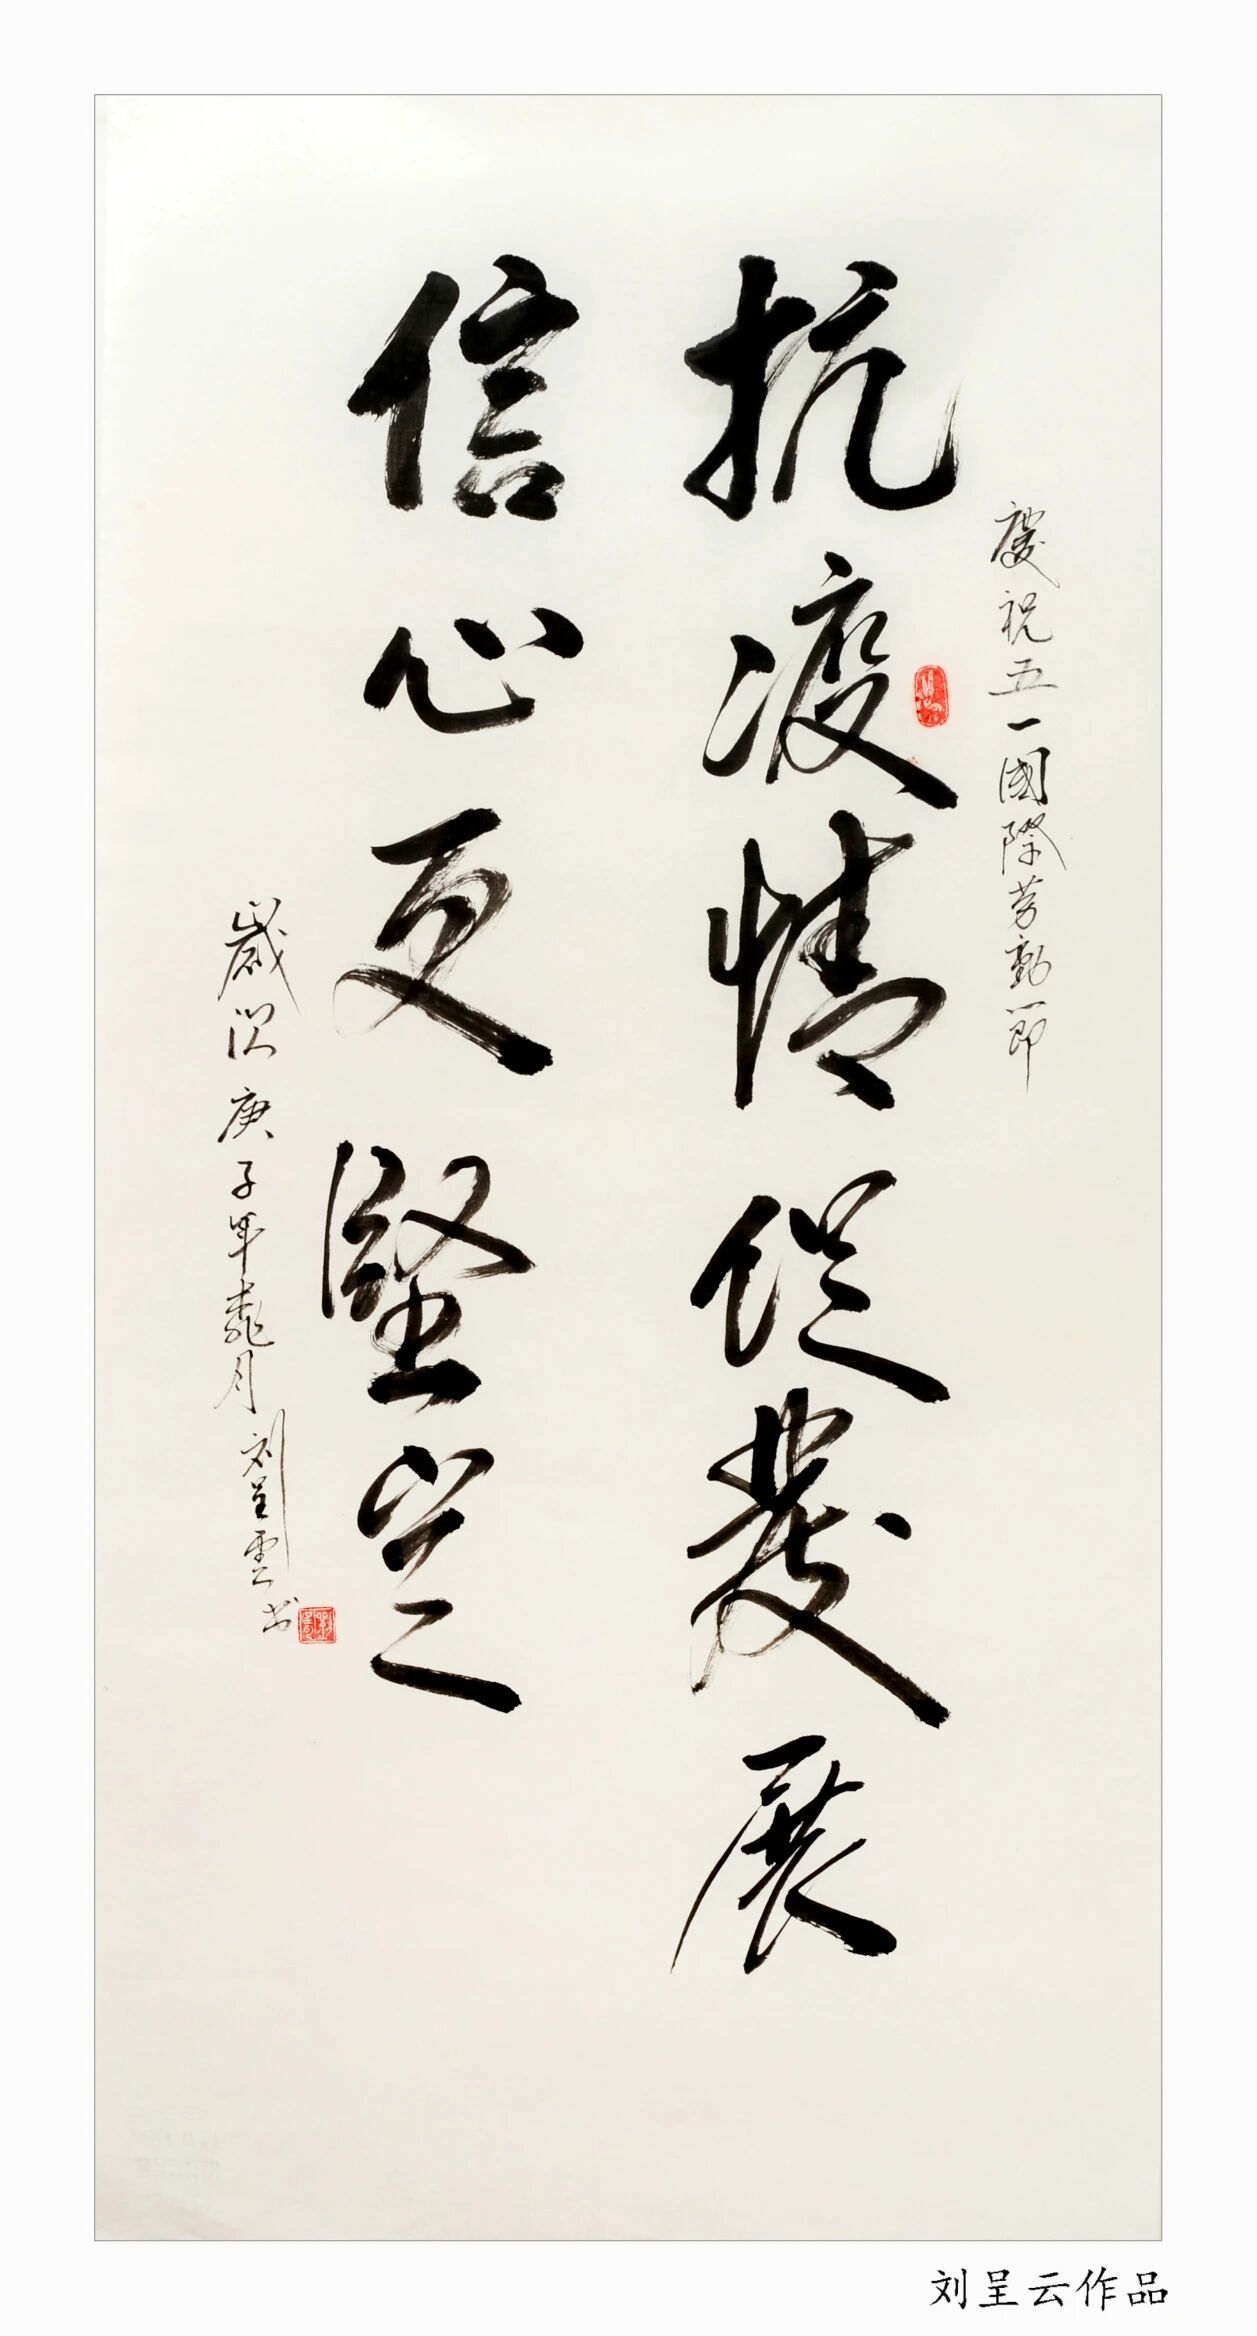 慶祝五一國際劳動節
抗疫情促發展
信心更堅定
歲次庚子年桃月
刘呈雲书
刘呈云作品